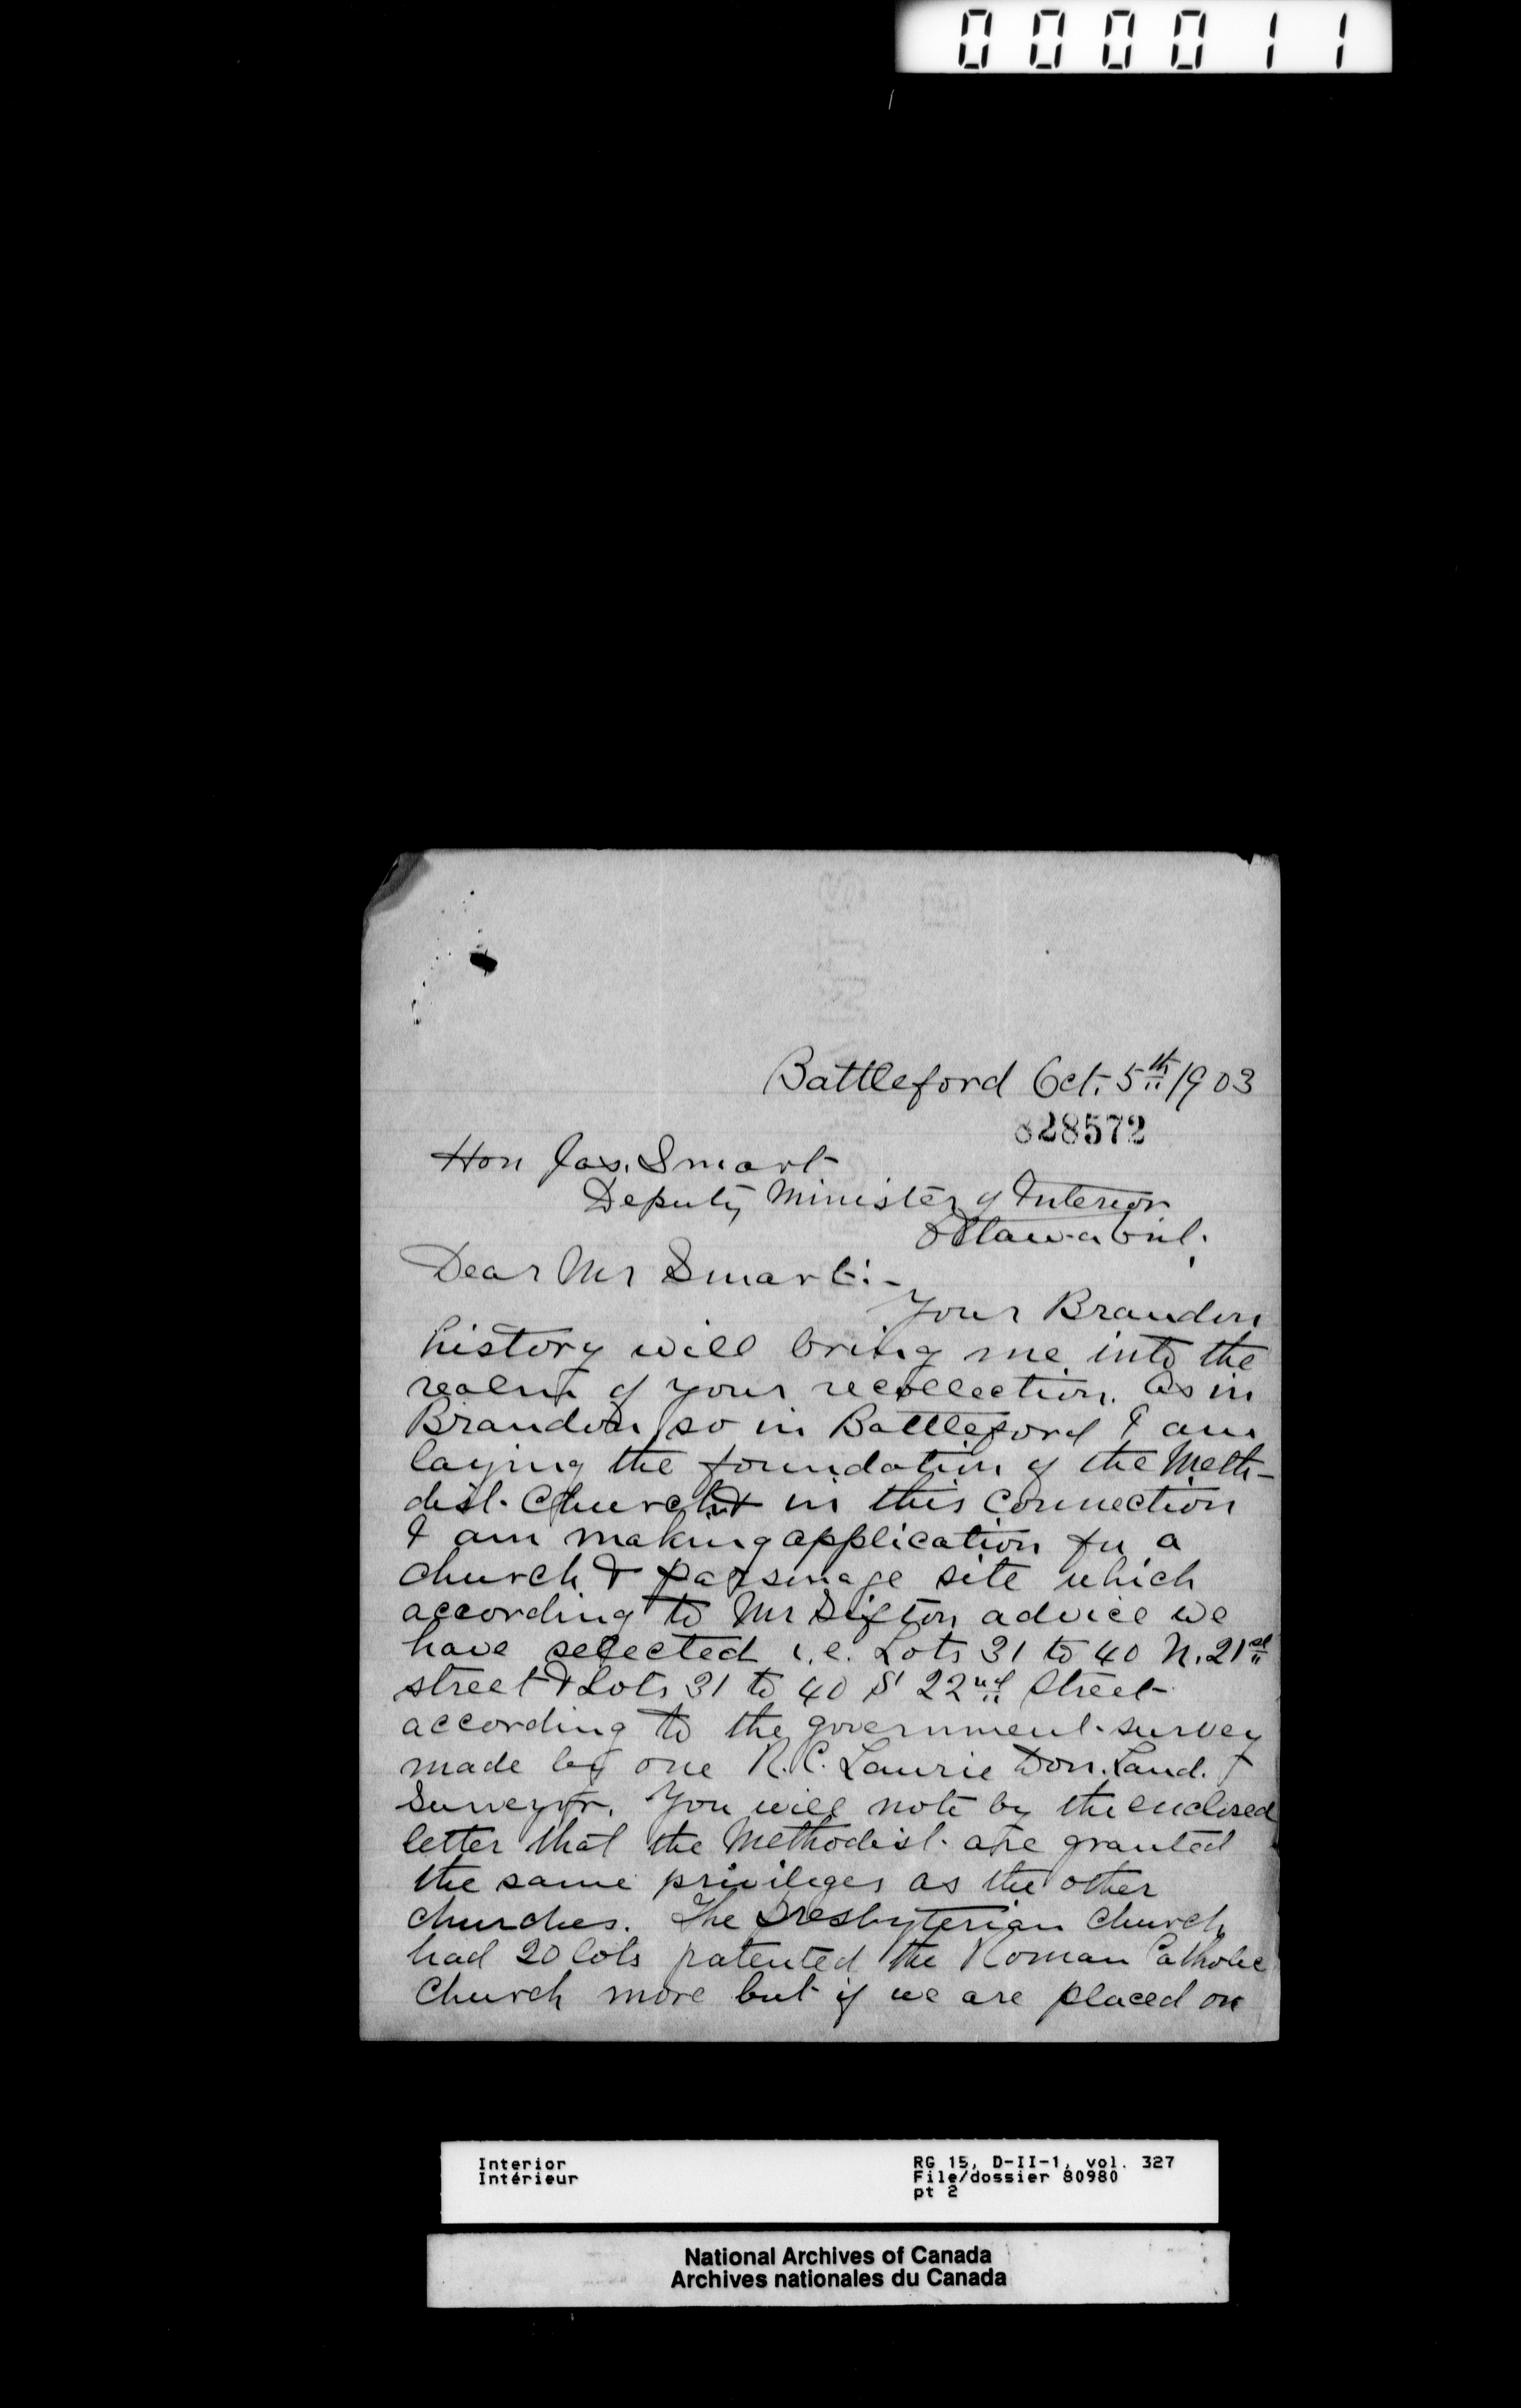 000011
Battleford Oct. 5th 1903
828572
Hon Jas. Smart
Deputy Minister of Interior
Ottawa Ont.
Dear Mr Smart:-
Your Brandon
history will bring me into the
realm of your recollection. As in
Brandon so in Battleford I am
laying the foundation of the Meth-
dist Church & in this connection
I am making application for a
church & parsonage site which
according to Mr Sifton advice we
have selected i.e. Lots 31 to 40 N. 21st
street & Lots 31 to 40 S 22nd Street
according to the government survey
made by one R.C. Laurie Dom. Land.
Surveyor. You will note by the enclosed
letter that the Methodist are granted
the same privileges as the other
churches. The Presbyterian church
had 20 lots patented the Roman Catholic
Church more but if we are placed on
Interior
Intérieur
RG 15, D-II-1, vol. 327
File/dossier 80980
pt 2
National Archives of Canada
Archives nationales du Canada